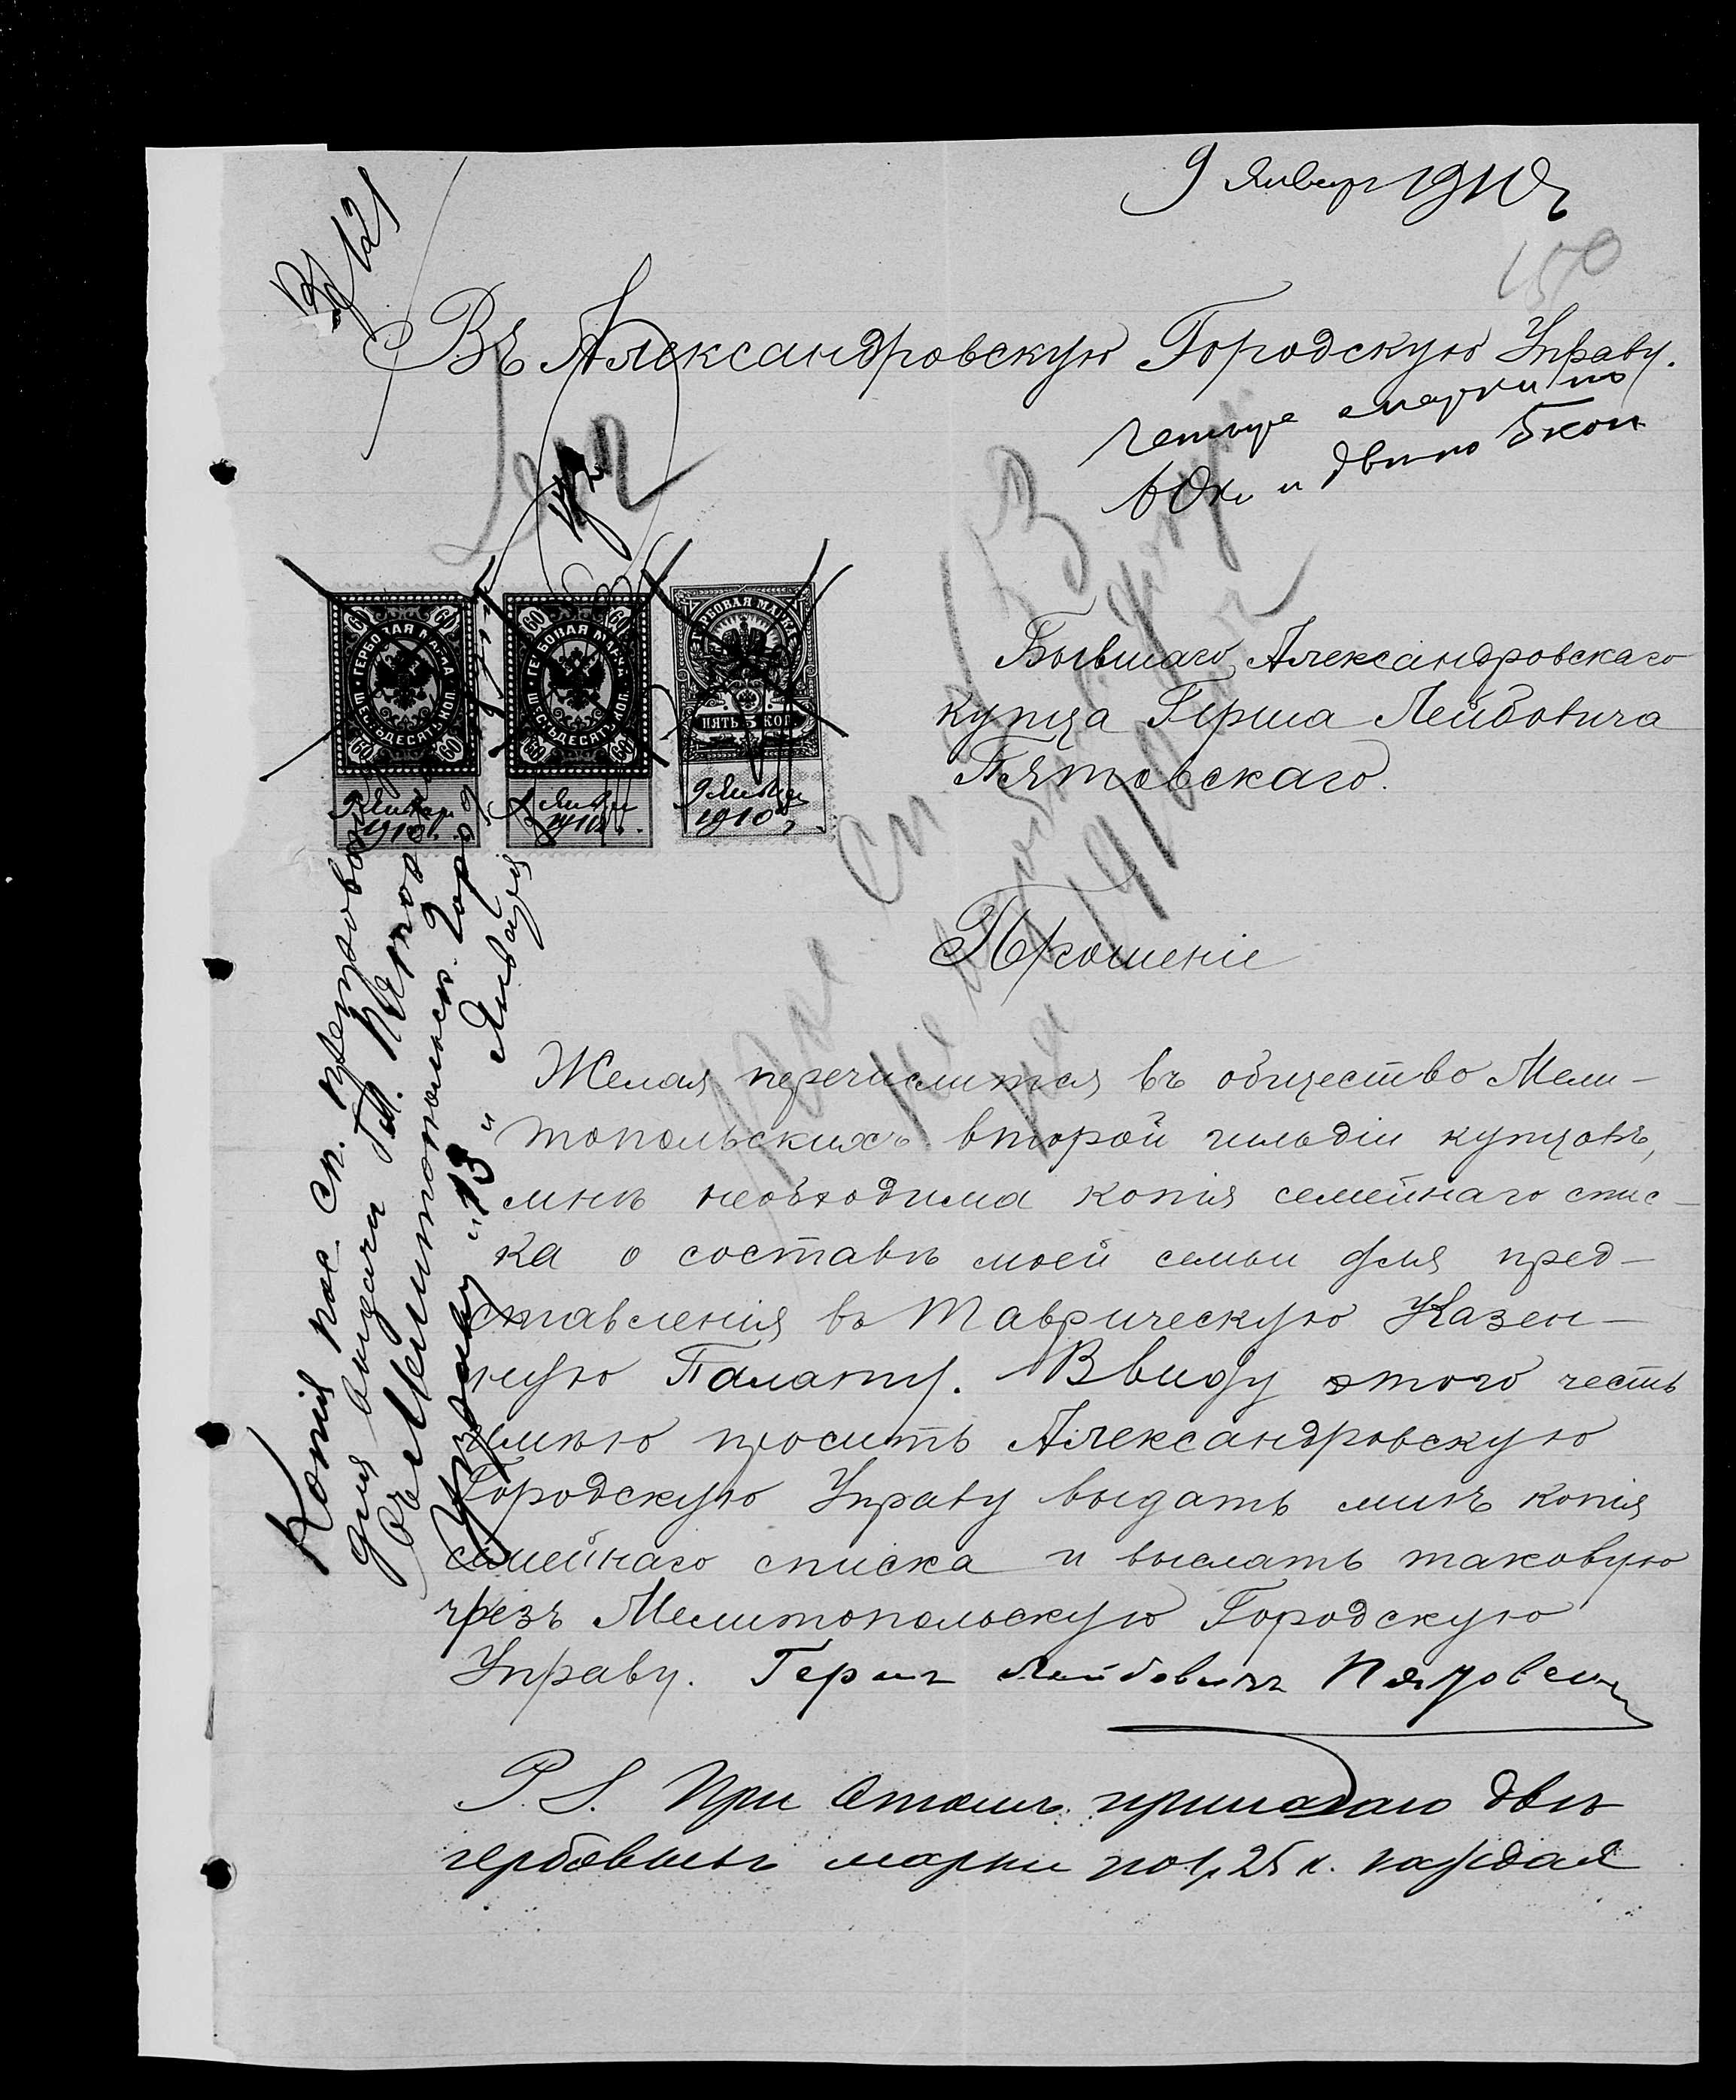 9 Январ 1910 г
№ 121
150
Въ Александровскую Городскую Управу.
четыре марки по
60 к и две по 5 коп
Бывшаго Александровскаго
купца Герша Лейбовича
Пятовскаго.
ГЕРБОВАЯ МАРКА
ШЕСТЬДЕСЯТЪ КОП.
60 60 60 60
9 Январ
1910 г.
ГЕРБОВАЯ МАРКА
ШЕСТЬДЕСЯТЪ КОП.
60 60 60 60
9 Январ
1910 г.
ГЕРБОВАЯ МАРКА
ПЯТЬ 5 КОП.
9 Январ
1910 г.
Прошеніе
Желая перечислится въ общество Мели-
топольскихъ второй гильдіи купцовъ,
мнѣ необходима копія семейнаго спис-
ка о составѣ моей семьи для пред-
ставленія въ Таврическую Казен-
ную Палату. Ввиду этого честь
имѣю просить Александровскую
Городскую Управу выдать мнѣ копія
семейнаго списка и выслать таковую
чрезъ Мелитопольскую Городскую
Управу. Герш Лейбовичъ Пятовски
P. S. При этомъ прилагаю двѣ
гербовыхъ марки по 1 р 25 к. каждая
Копія пос. сп. препровожд
для выдачи Гл. Пятов
въ Мелитопольск. Город
Управу "13" Января